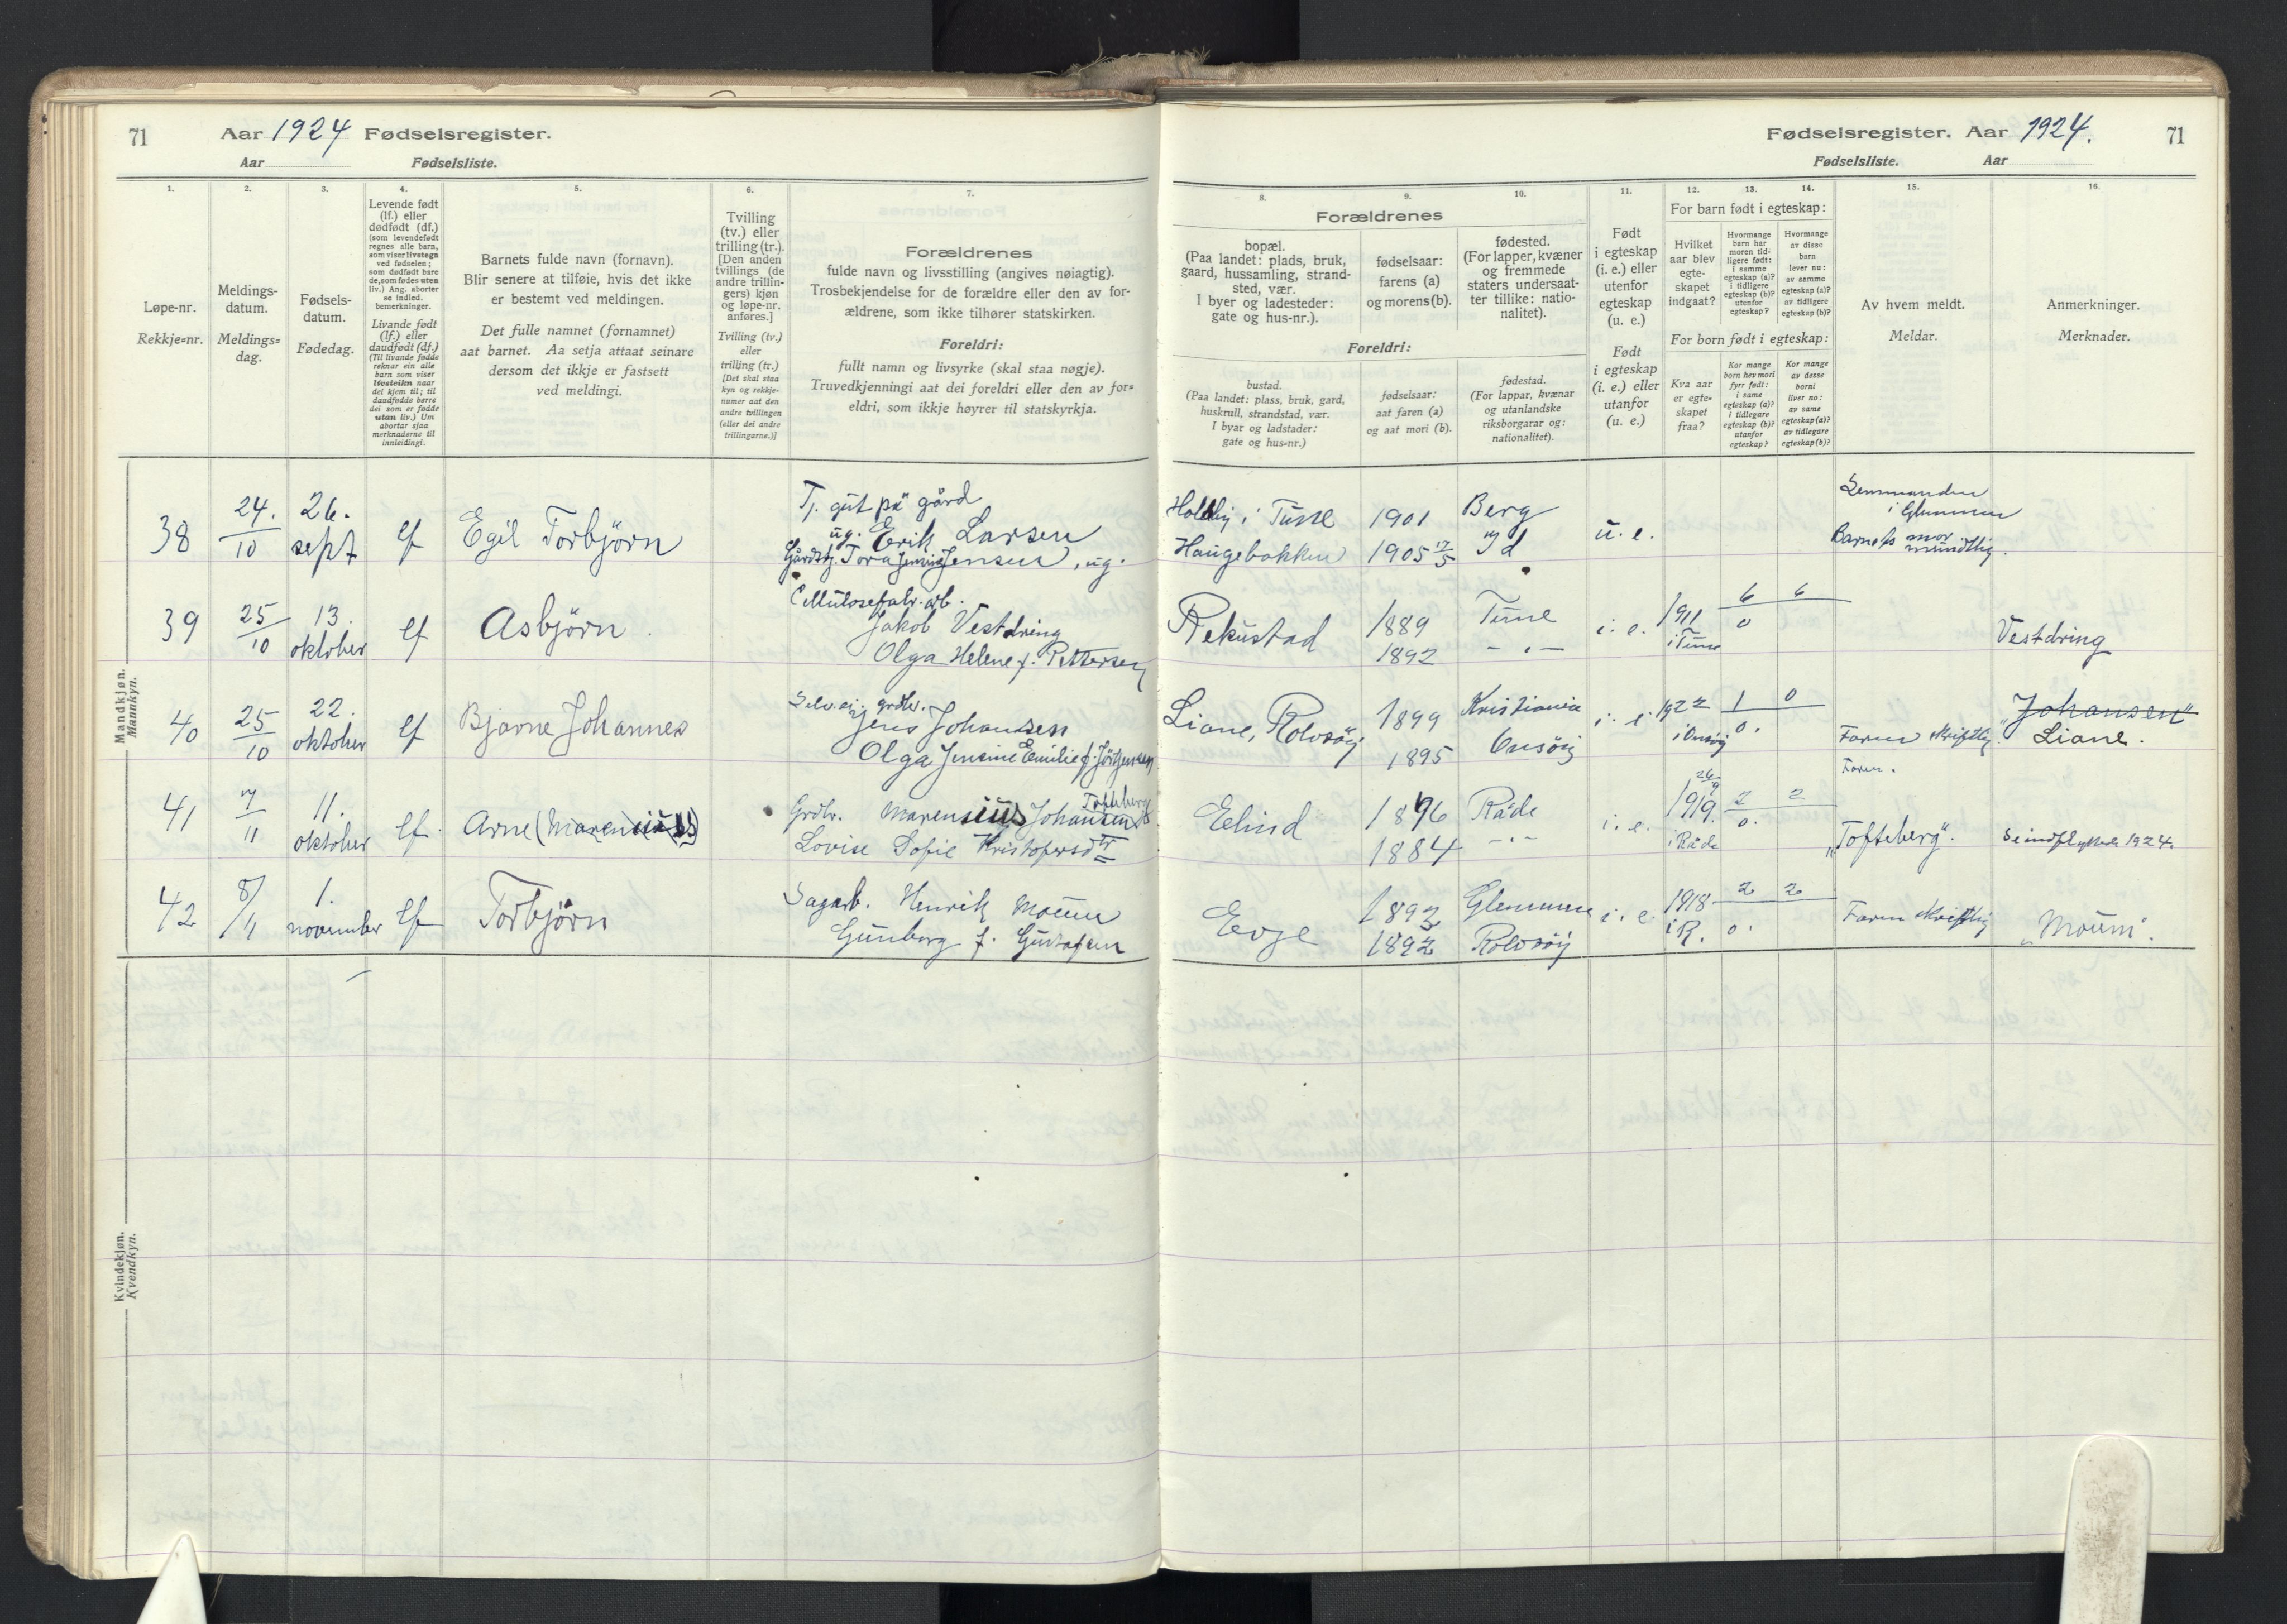 71 Aar 1924 Fødselsregister.
Aar Fødselsliste.
1. 2. 3. 4. 5. 6. 7.
Løpe-nr.
Rekkje-nr.
Meldings-
datum.
Meldings-
dag.
Fødsels-
datum.
Fødedag.
Levende født
(lf.) eller
dødfødt (df.)
(som levendefødt
regnes alle barn,
som viser livstegn
ved fødselen;
som dødfødt bare
de, som fødes uten
liv.) Ang. aborter
se indled.
bemerkninger.
Livande født
(lf.) eller
daudfødt (df.)
(Til livande fødde
reknar ein alle
barn som viser
livsteikn naar
dei kjem til; til
daudfødde berre
dei som er fødde
utan liv.) Um
abortar sjaa
merknaderne til
innleidingi.
Barnets fulde navn (fornavn).
Blir senere at tilføie, hvis det ikke
er bestemt ved meldingen.
Det fulle namnet (fornamnet)
aat barnet. Aa setja attaat seinare
dersom det ikkje er fastsett
ved meldingi.
Tvilling
(tv.) eller
trilling (tr.).
[Den anden
tvillings (de
andre trillin-
gers) kjøn
og løpe-nr.
anføres.]
Tvilling (tv.)
eller
trilling (tr.)
[Det skal staa
kyn og rekkje-
numer aat den
andre tvillingen
(eller dei andre
trillingarne.)]
Forældrenes
fulde navn og livsstilling (angives nøiagtig).
Trosbekjendelse for de forældre eller den av for-
ældrene, som ikke tilhører statskirken.
Foreldri:
fullt namn og livsyrke (skal staa nøgje).
Truvedkjenningi aat dei foreldri eller den av for-
eldri, som ikkje høyrer til statskyrkja.
Mandkjøn.
Mannkyn.
38 24./10 26. sept lf Egil Torbjörn
Tj. gut på gård
ug. Erik Larsen
Gårdstj. Tora Jensine Jensen, ug.
39 25/10 13. oktober lf Asbjörn.
Cellulosefabr. arb.
Jakob Vestdring
Olga Helene f. Pettersen
40 25/10 22. oktober lf Bjarne Johannes
Selvei. grdbr.
Jens Johansen
Olga Jensine Emilie f. Jörgensen
41 7/11 11. oktober lf. Arne (Marensius)
Grdbr. Marensius Johansen Tofteberg
Lovise Sofie Kristofersdtr
42 8/11 1. november lf Torbjörn
Sagarb. Henrik Moum
Gunborg f. Gustafsen
Kvindekjøn.
Kvendkyn.
Fødselsregister. Aar 1924. 71
Fødselsliste. Aar
8. 9. 10. 11. 12. 13. 14. 15. 16.
Forældrenes
bopæl.
(Paa landet: plads, bruk,
gaard, hussamling, strand-
sted, vær.
I byer og ladesteder:
gate og hus-nr.).
fødselsaar:
farens (a)
og morens (b).
fødested.
(For lapper, kvæner
og fremmede
staters undersaat-
ter tillike: natio-
nalitet).
Foreldri:
bustad.
(Paa landet: plass, bruk, gard,
huskrull, strandstad, vær.
I byar og ladstader:
gate og hus-nr.)
fødselsaar:
aat faren (a)
og aat mori (b).
fødestad.
(For lappar, kvænar
og utanlandske
riksborgarar og:
nationalitet).
Født
i egteskap
(i. e.) eller
utenfor
egteskap
(u. e.)
Født
i egteskap
(i. e.) eller
utanfor
(u. e.)
For barn født i egteskap:
Hvilket
aar blev
egte-
skapet
indgaat?
Hvormange
barn har
moren tid-
ligere født:
i samme
egteskap (a)?
i tidligere
egteskap (b)?
utenfor
egteskap?
Hvormange
av disse
barn
lever nu:
av samme
egteskap (a)?
av tidligere
egteskap (b)?
For born født i egteskap:
Kva aar
er egte-
skapet
fraa?
Kor mange
born hev mori
fyrr født:
i same
egteskap (a)?
i tidlegare
egteskap (b)?
utanfor
egteskap?
Kor mange
av desse
borni
liver no:
av same
egteskap (a)?
av tidlegare
egteskap (b)?
Av hvem meldt.
Meldar.
Anmerkninger.
Merknader.
Holleby i Tune 1901 Berg
Haugebakken 1905 17/5 Id
u. e.
Lensmanden
i Glemmen
Barnets mor
mundtlig.
Rekustad 1889 Tune i. e. 1911 6 6
1892 - " - i Tune 0
Vestdring
Liane, Rolvsöy 1899 Kristiania i. e. 1922 1 0
1895 Onsöy i Onsöy 0.
Faren skriftlig.
"Johansen"
Liane.
Elind 1896 Råde i. e. 26/9 1919. 2 2
1884 - " - i Råde 0.
Faren.
"Tofteberg".
Se indflyttede 1924.
Evje 1892 Glemmen i. e. 1918 2 2
1892 Rolvsöy i R. 0.
Faren skriftlig
"Moum".